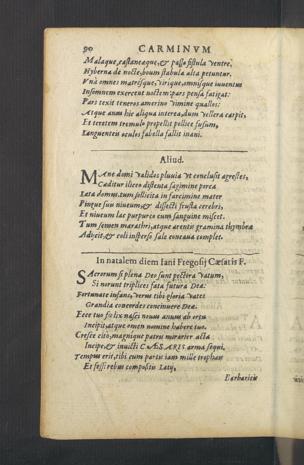 90 CARMINVM
Malaque, castaneaque, & passo fistula ventre.
Hyberna de nocte, boum stabula alta petuntur.
Vnà omnes matresque, virique, omnisque iuuentus
Insomnem exercent noctem: pars pensa fatigat:
Pars texit teneros amerino vimine quallos:
Atque anus hic aliqua interea, dum vellera carpit,
Et teretem tremulo propellit pollice fusum,
Languenteis oculos fabella fallit inani.
Aliud.
MAne domi validos pluuia vt conclusit agrestes,
Caditur ilicco distenta sagimine porca
Lata domus. tum sollicita in farcimine mater
Pingue suu niueum, & dissecti frusta cerebri,
Et niueum lac purpureo cum sanguine miscet.
Tum semen marathri, atque arentis gramina thymbra
Adijcit, & coli insperso sale concaua complet.
In natalem diem Iani Fregosij Cæsatis F.
SAcrorum si plena Deo sunt pectora vatum,
Si norunt triplices fata futura Deæ:
Fortunate infans, veniet tibi gloria
Grandia concordes cecinnere Deæ.
Ecce tuo felix nasci nouus annus ab ortu
Incipit, atque omen nomine habere tuo.
Cresce cito, magnique patris mirarier acta
Incipe, & inuicti CAESARIS arma sequi,
Tempus erit, tibi cum partis iam mille trophæis
Et fessi rebus compositis Latij,
Barbaricis